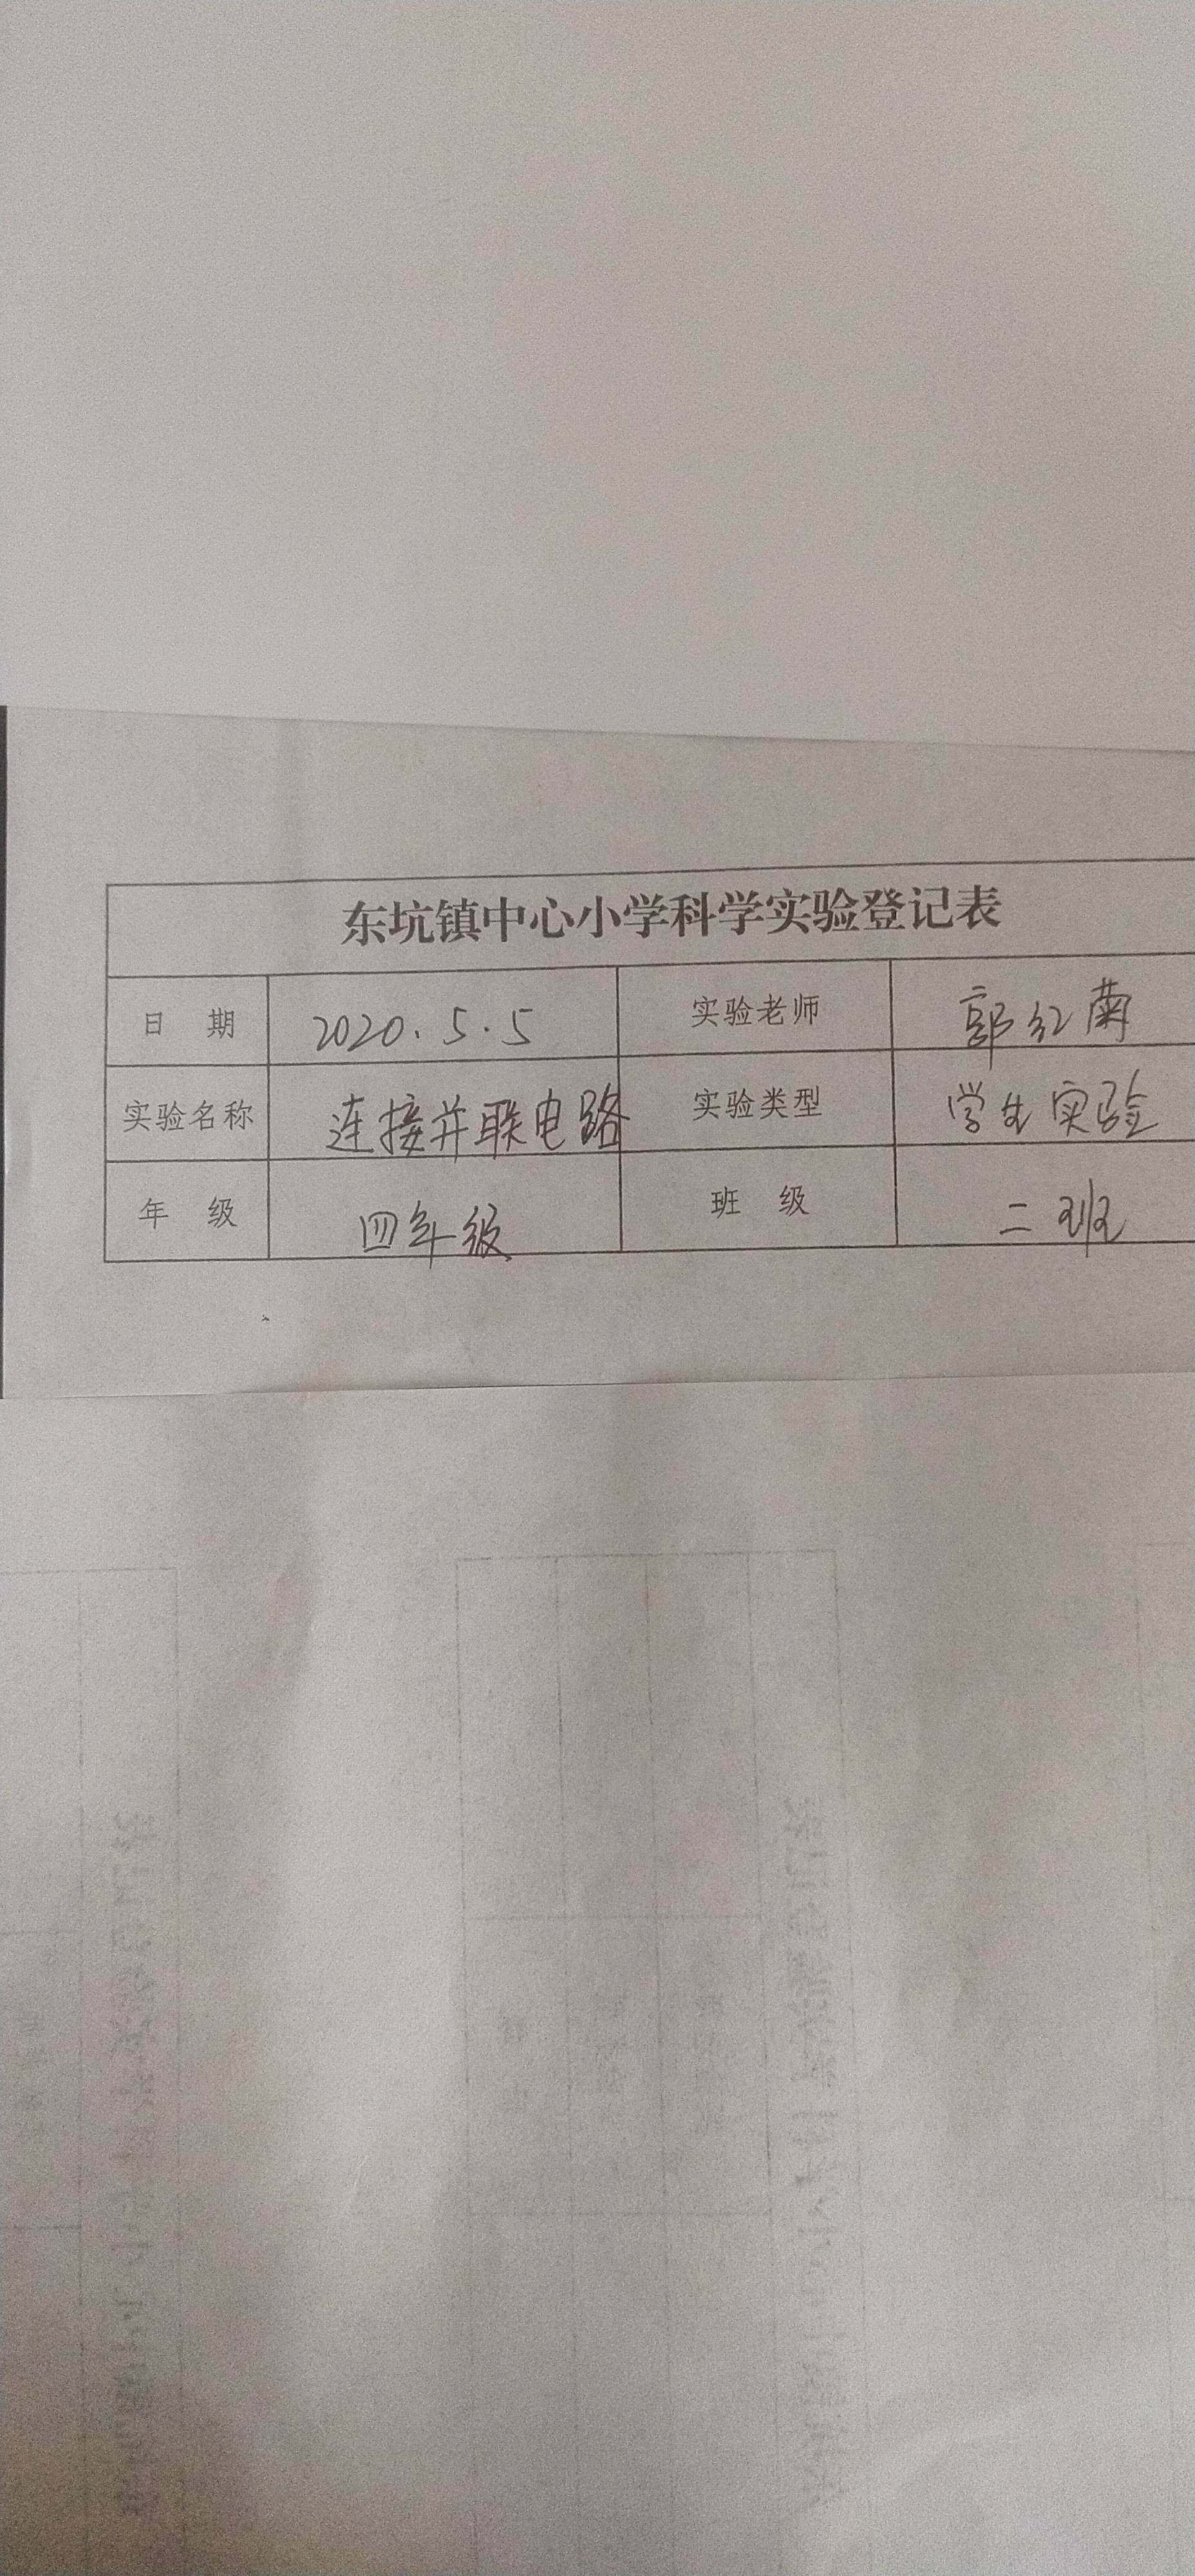 东坑镇中心小学科学实验登记表
日 期 2020.5.5 实验老师 郭红菊
实验名称 连接并联电路 实验类型 学生实验
年 级 四年级 班 级 二班